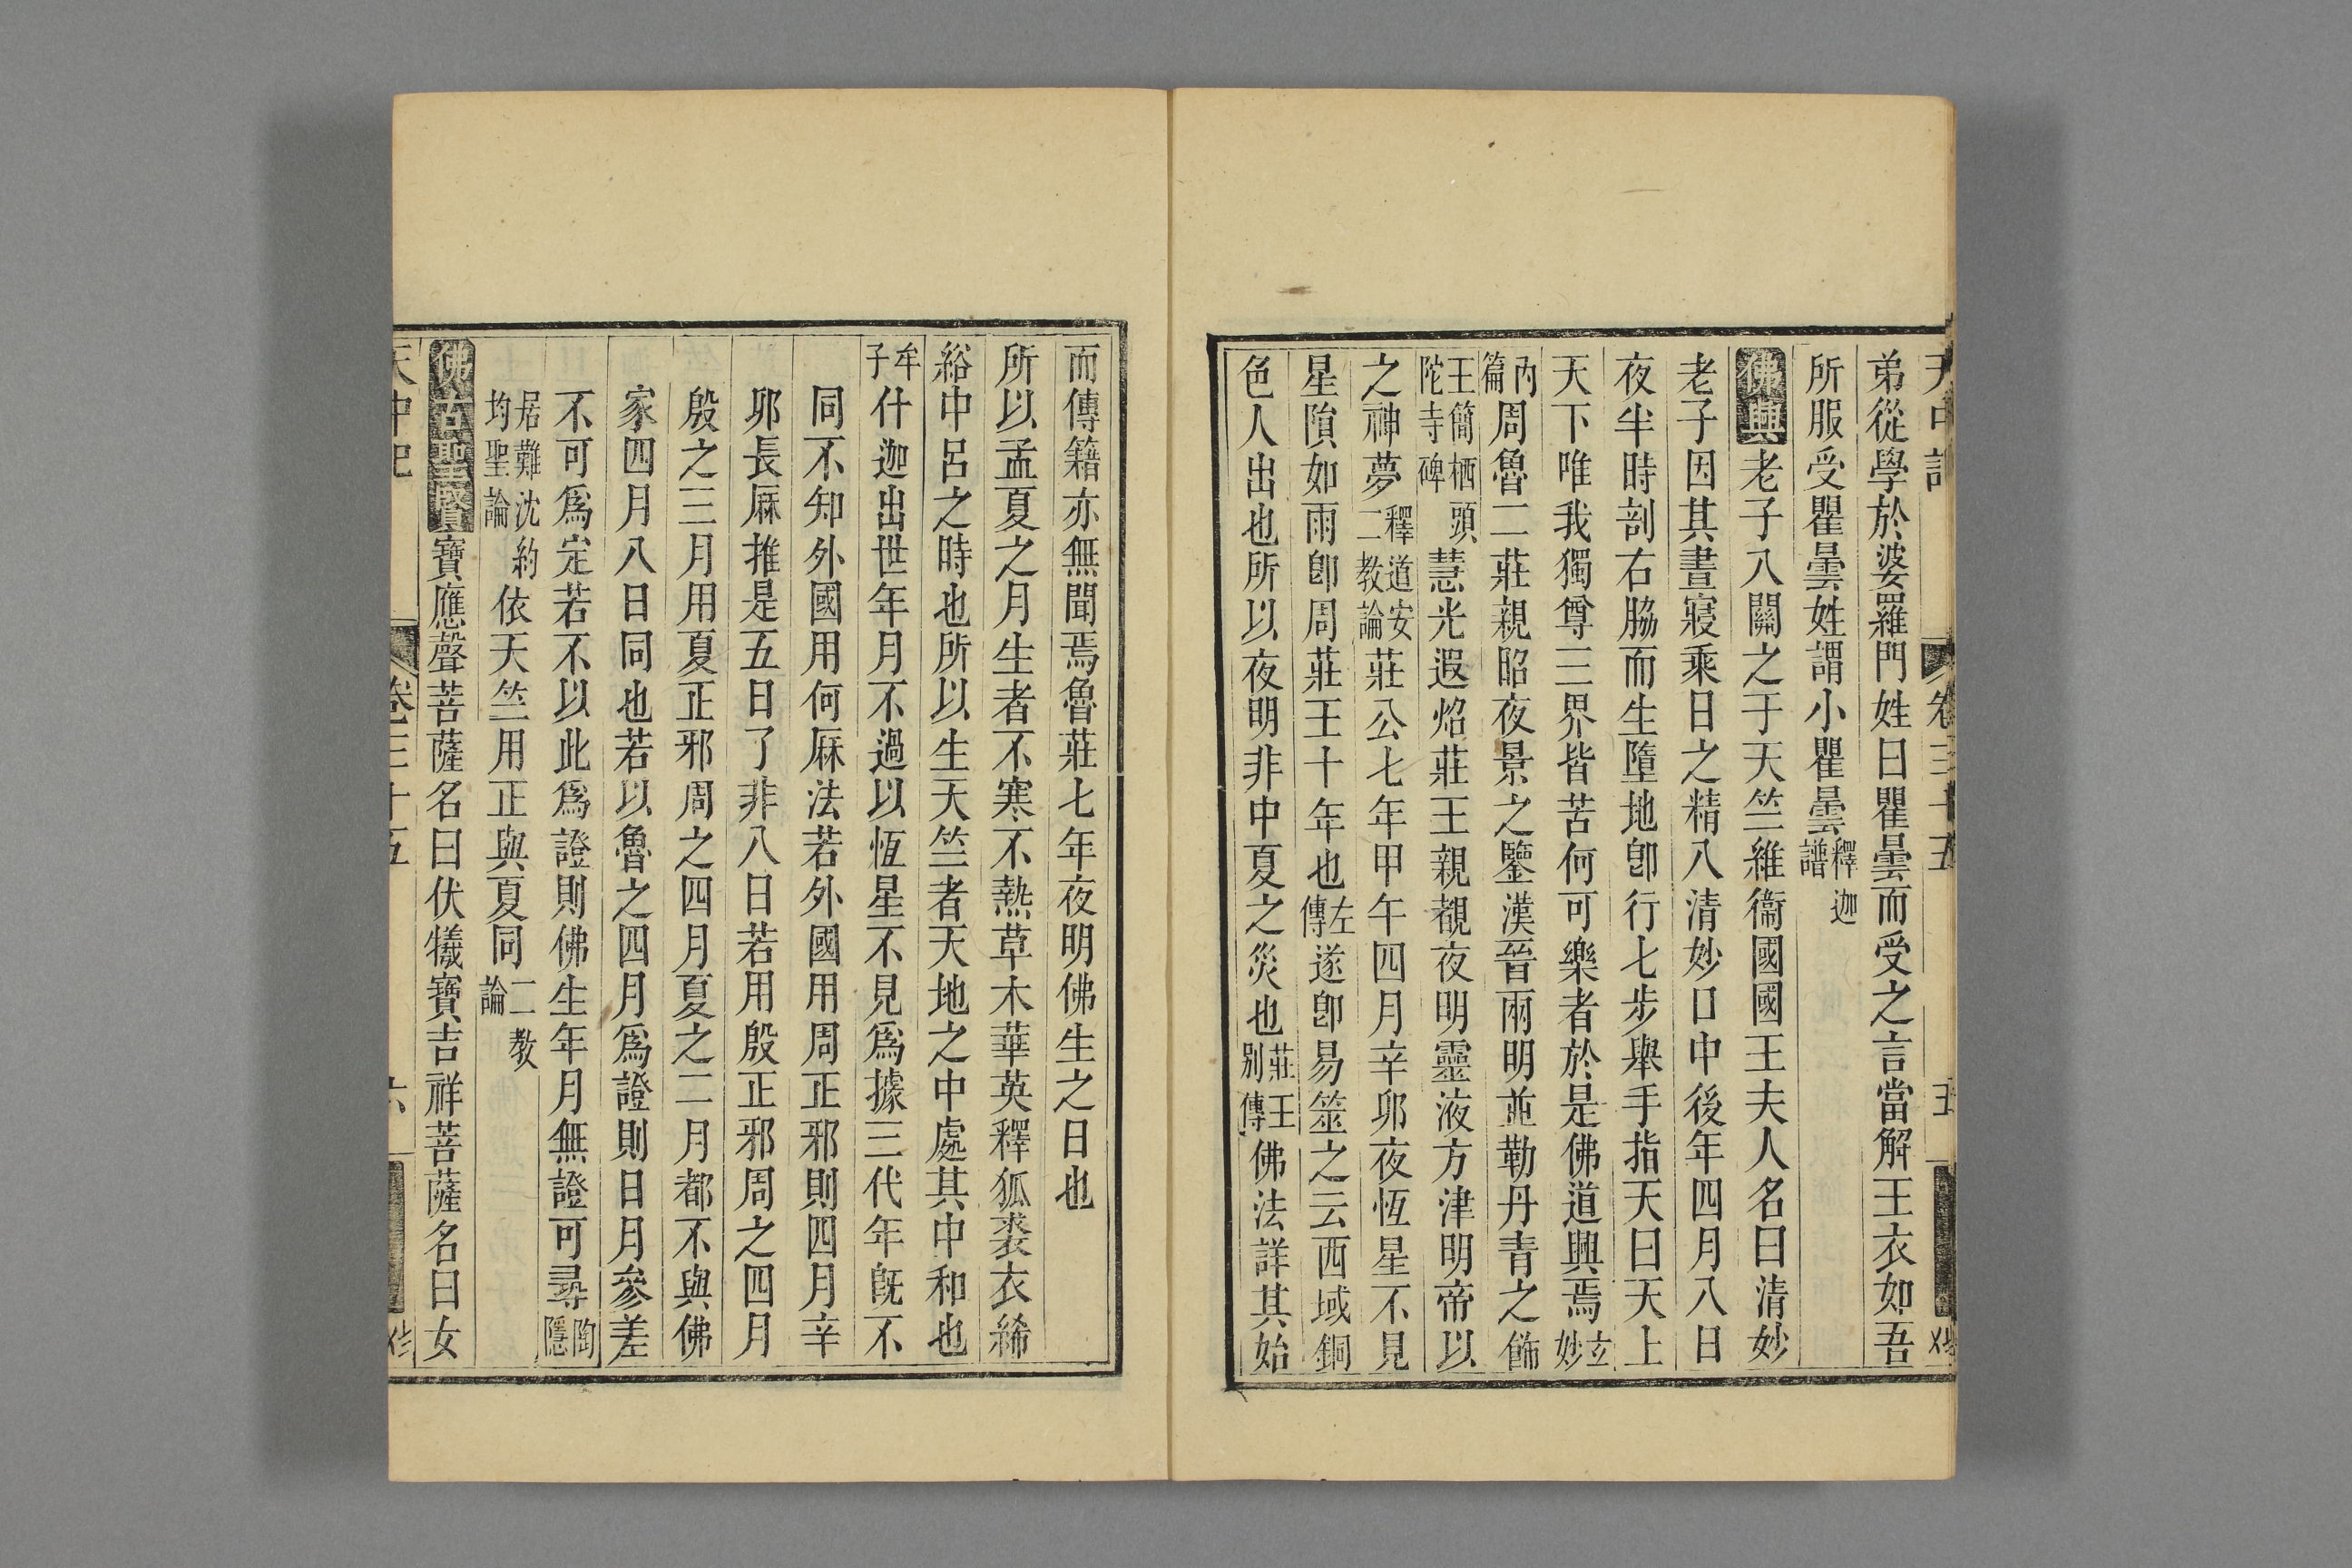 天中記 卷三十五 五
弟從學於婆羅門姓曰瞿曇而受之言當解王衣如吾
所服受瞿曇姓謂小瞿曇釋迦譜
佛興老子入關之于天竺維衞國國王夫人名曰清妙
老子因其晝寢乘日之精入清妙口中後年四月八日
夜半時剖右脇而生墮地卽行七步舉手指天曰天上
天下唯我獨尊三界皆苦何可樂者於是佛道興焉玄妙
內篇周魯二莊親昭夜景之鑒漢晉兩明並勒丹青之飾
王簡栖頭陀寺碑慧光遐焰莊王親覩夜明靈液方津明帝以
之神夢釋道安二教論莊公七年甲午四月辛卯夜恆星不見
星隕如雨卽周莊王十年也左傳遂卽易筮之云西域銅
色人出也所以夜明非中夏之災也莊王别傳佛法詳其始
而傳籍亦無聞焉魯莊七年夜明佛生之日也
所以孟夏之月生者不寒不熱草木華英釋狐裘衣絺
綌中呂之時也所以生天竺者天地之中處其中和也
牟子什迦出世年月不過以恆星不見爲據三代年旣不
同不知外國用何厤法若外國用周正邪則四月辛
卯長厤推是五日了非八日若用殷正邪周之四月
殷之三月用夏正邪周之四月夏之二月都不與佛
家四月八日同也若以魯之四月爲證則日月參差
不可爲定若不以此爲證則佛生年月無證可尋陶隱
居難沈約均聖論依天竺用正與夏同二教論
佛爲聖賢寶應聲菩薩名曰伏犧寶吉祥菩薩名曰女
天中記 卷三十五 六